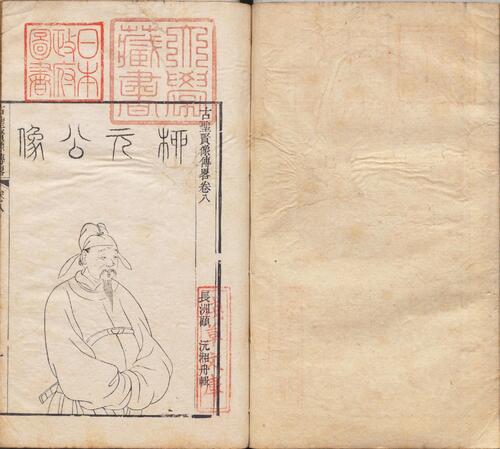 古聖賢像傳畧卷八
長洲顧 沅湘舟輯
柳元公像
大學藏書
日本政府圖書
淺草文庫